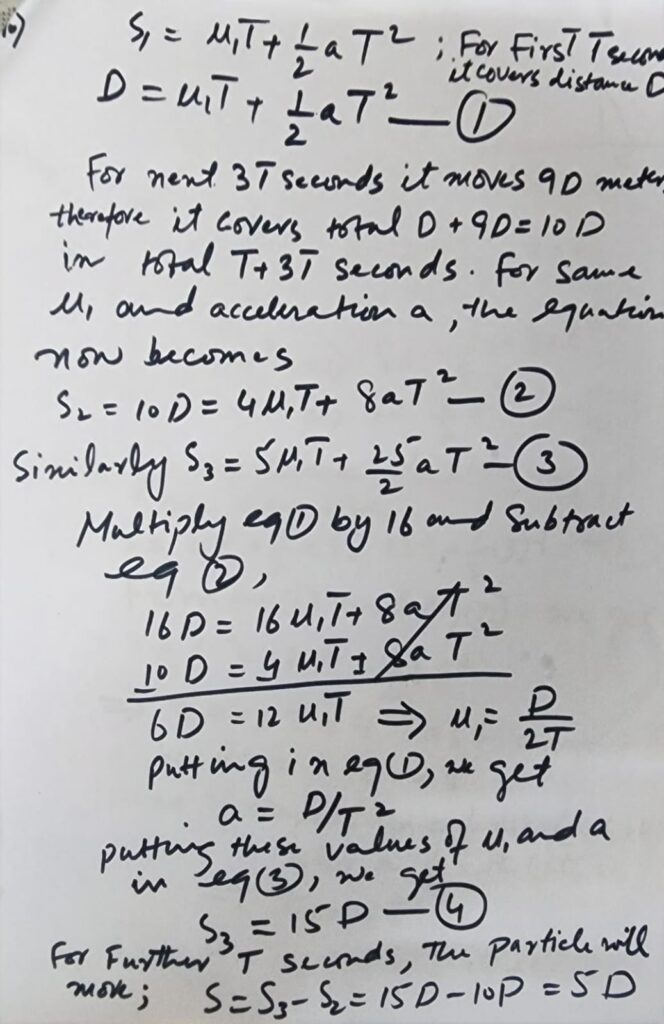 10)
S₁ = u₁T + 1/2 a T² ; For First T secon
it covers distance D
D = u₁T + 1/2 aT² — ①
For next 3T seconds it moves 9D meter,
therefore it covers total D + 9D = 10D
in total T+3T seconds. for same
u₁ and acceleration a, the equation
now becomes
S₂ = 10D = 4u₁T + 8aT² — ②
Similarly S₃ = 5u₁T + 25/2 aT² — ③
Multiply eq ① by 16 and Subtract
eq ②,
16D = 16u₁T + 8aT²
10D = 4u₁T ± 8aT²
6D = 12u₁T ⇒ u₁ = D/2T
putting in eq ①, we get
a = D/T²
putting these values of u₁ and a
in eq ③, we get
S₃ = 15D — ④
For Further T seconds, The particle will
move; S = S₃ - S₂ = 15D - 10D = 5D